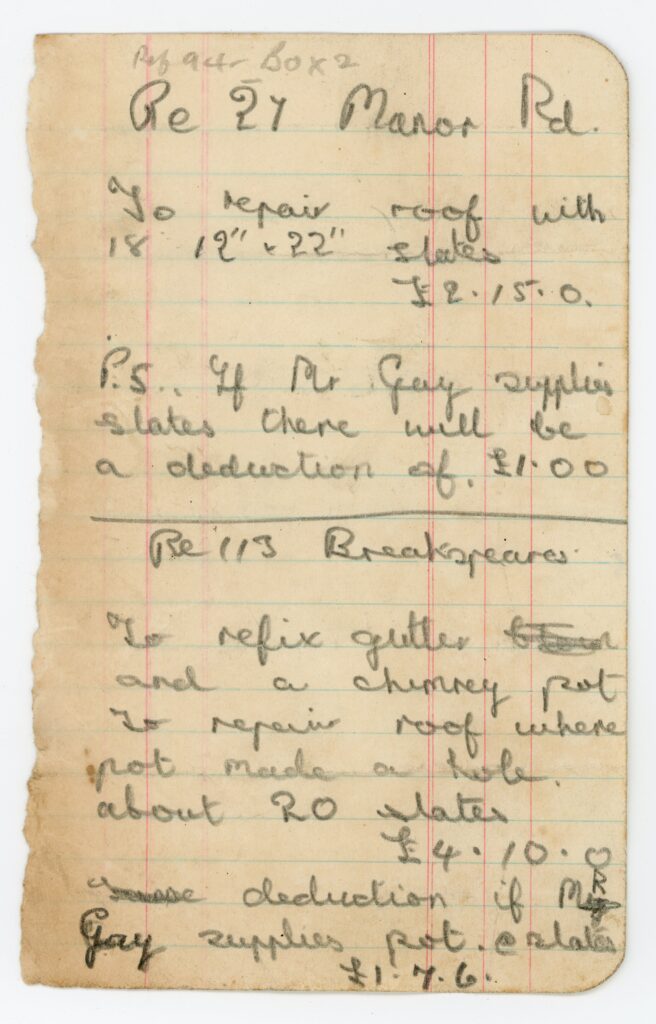 Box 2
Re 27 Manor Rd.
To repair roof with
18 12" x 22" slates
£2.15.0.
P.S.. If Mr Gay supplies
slates there will be
a deduction of. £1.00
Re 113 Breakspears
To refix gutter
and a chimney pot
To repair roof where
pot made a hole.
about 20 slates
£4.10.0
deduction if Mr
Gay supplies pot. & slates
£1.7.6.